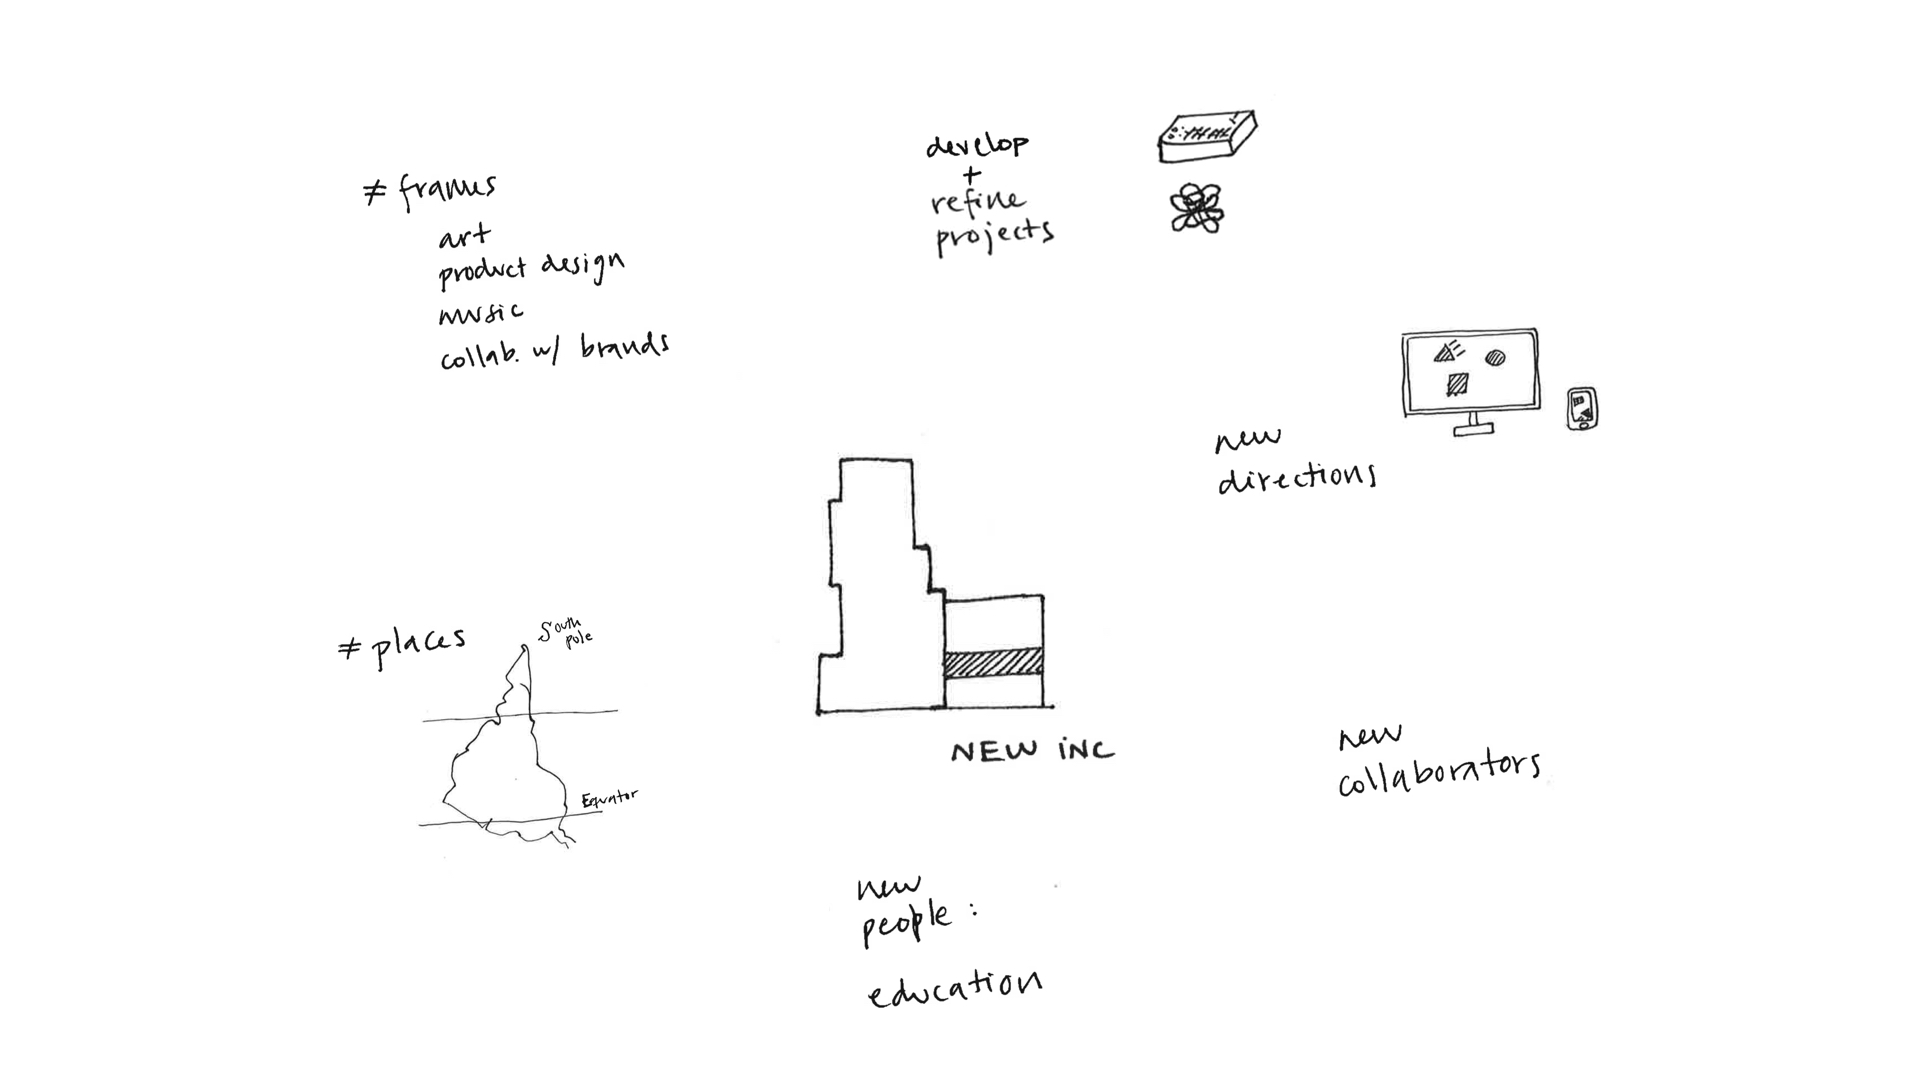 ≠ frames
art
product design
music
collab. w/ brands
develop
+
refine
projects
new
directions
≠ places
South
pole
Equator
NEW INC
new
collaborators
new
people :
education